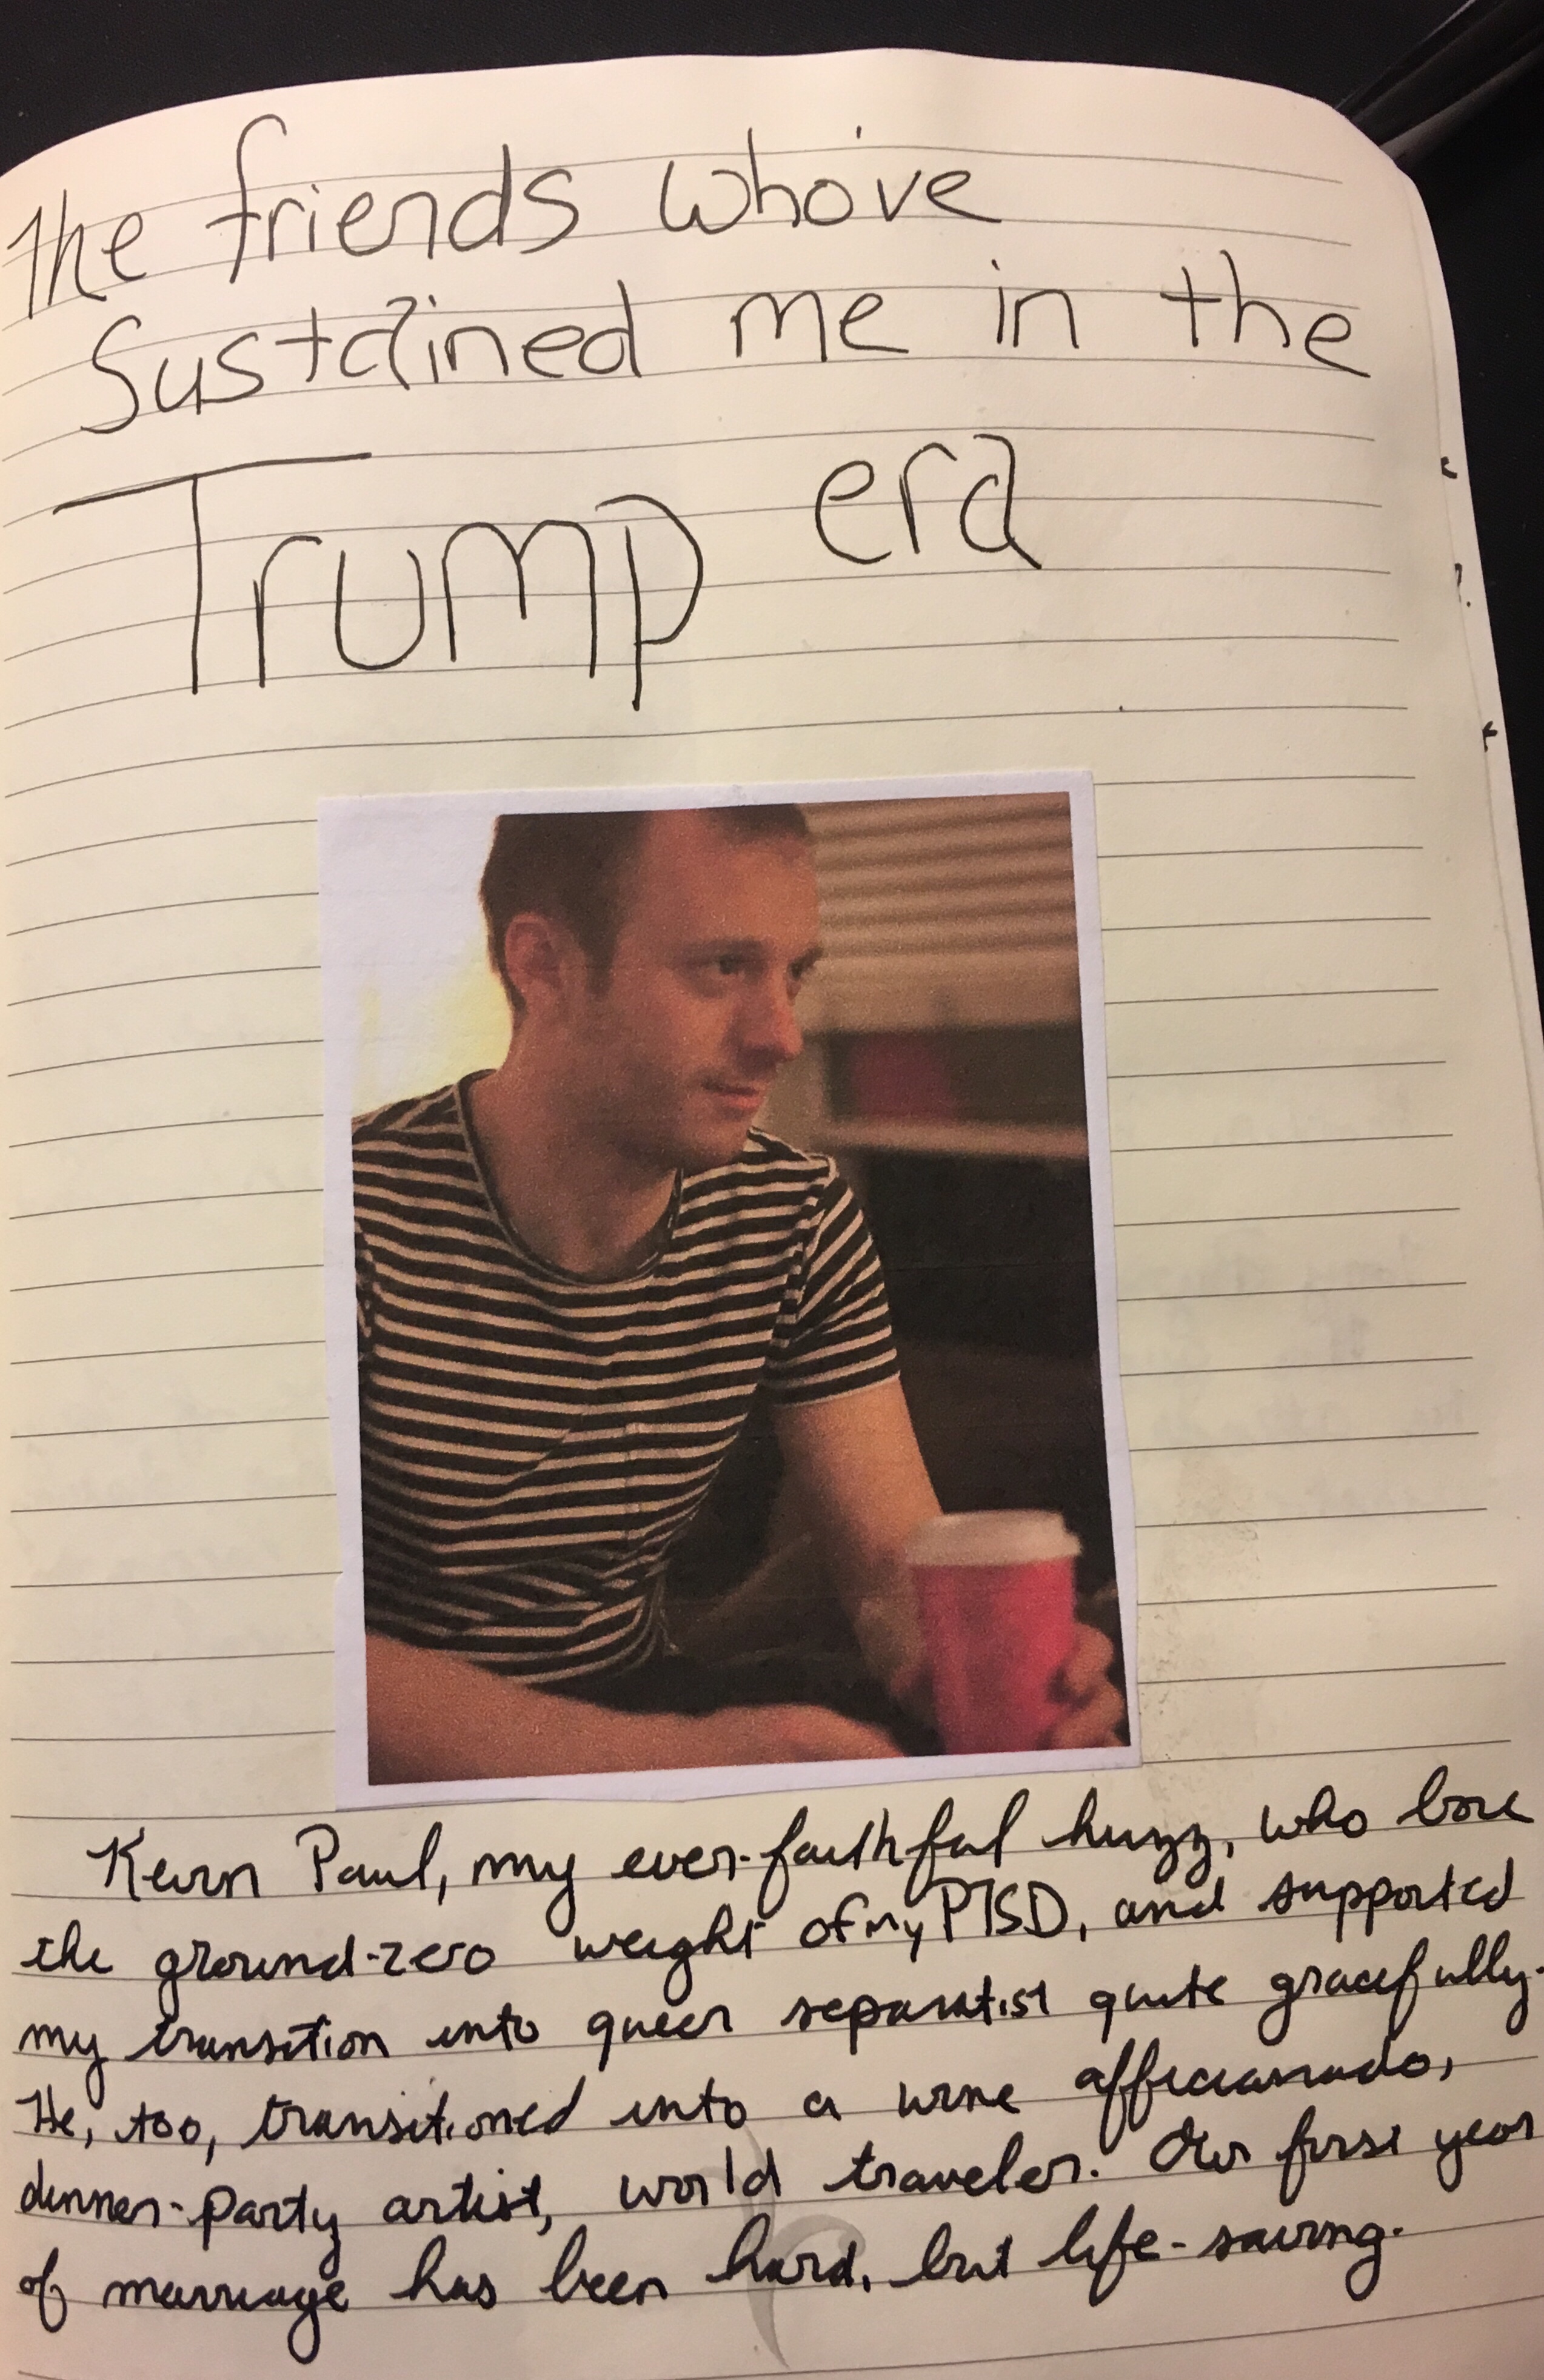 The friends who've
sustained me in the
Trump era
Kevin Paul, my ever-faithful huzz, who bore
the ground-zero weight of my PTSD, and supported
my transition into queer separatist quite gracefully.
He, too, transitioned into a wine afficianado,
dinner-party artist, world traveler. Our first year
of marriage has been hard, but life-saving.